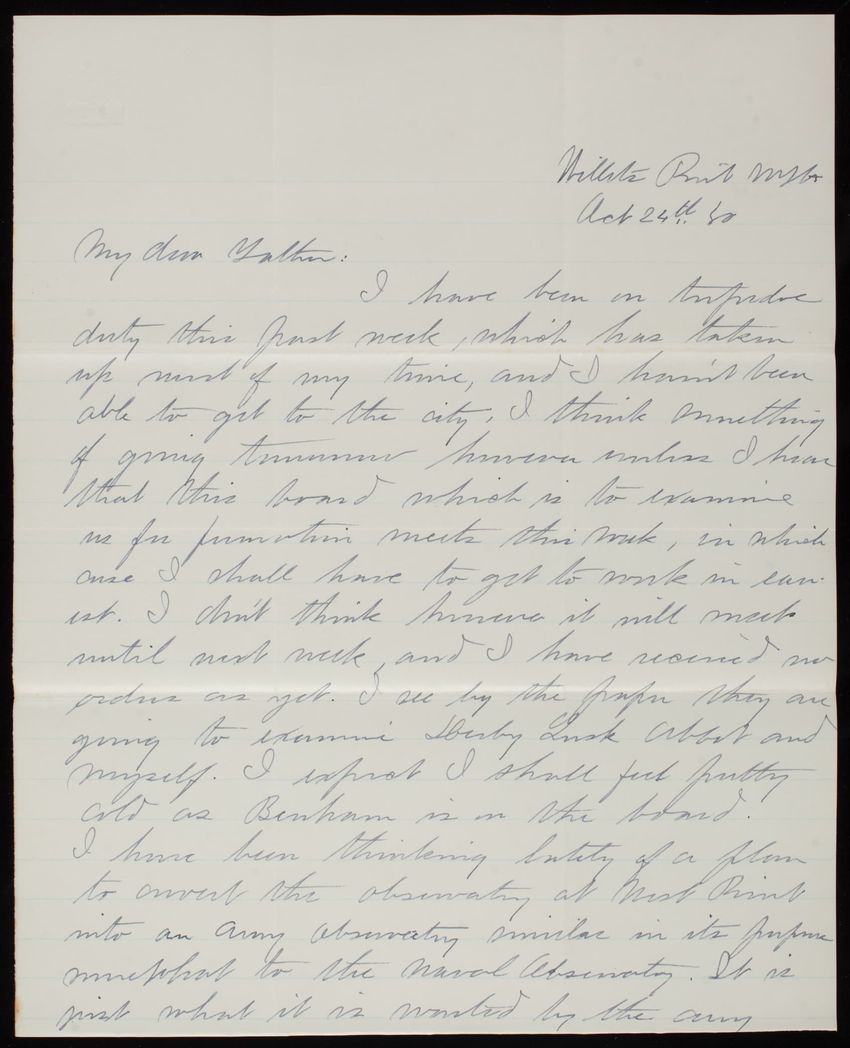 Willets Point NYHr
Oct 24th 80
My dear Father:
I have been on torpedoe
duty this past week, which has taken
up most of my time, and I hav'nt been
able to get to the city. I think something
of going tomorrow however unless I hear
that this board which is to examine
us for promotion meets this week, in which
case I shall have to get to work in earn-
est. I don't think however it will meet
until next week, and I have received no
orders as yet. I see by the paper they are
going to examine Derby Lusk Abbot and
myself. I expect I shall feel pretty
old as Benham is on the board.
I have been thinking lately of a plan
to convert the observatory at West Point
into an Army Observatory similar in its purpose
somewhat to the Naval Observatory. It is
just what it is wanted by the army